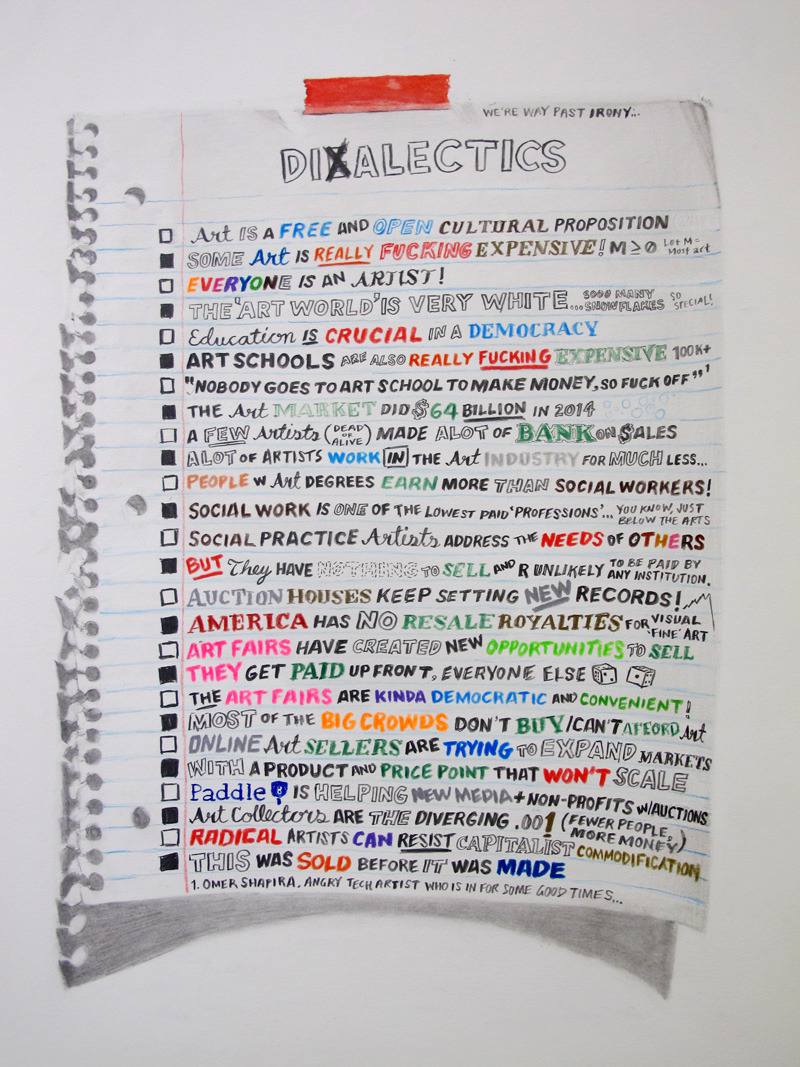 WE'RE WAY PAST IRONY...
DIXALECTICS
Art IS A FREE AND OPEN CULTURAL PROPOSITION
SOME Art IS REALLY FUCKING EXPENSIVE! M ≥ 0 Let M = Most art
EVERYONE IS AN ARTIST!
THE 'ART WORLD' IS VERY WHITE... SOOO MANY SNOWFLAKES SO SPECIAL!
Education IS CRUCIAL IN A DEMOCRACY
ART SCHOOLS ARE ALSO REALLY FUCKING EXPENSIVE 100K+
"NOBODY GOES TO ART SCHOOL TO MAKE MONEY, SO FUCK OFF" 1
THE Art MARKET DID $64 BILLION IN 2014
A FEW Artists (DEAD OR ALIVE) MADE ALOT OF BANK ON $ALES
ALOT OF ARTISTS WORK IN THE Art INDUSTRY FOR MUCH LESS...
PEOPLE W Art DEGREES EARN MORE THAN SOCIAL WORKERS!
SOCIAL WORK IS ONE OF THE LOWEST PAID 'PROFESSIONS'... YOU KNOW, JUST BELOW THE ARTS
SOCIAL PRACTICE Artists ADDRESS THE NEEDS OF OTHERS
BUT They HAVE NOTHING TO SELL AND R UNLIKELY TO BE PAID BY ANY INSTITUTION.
AUCTION HOUSES KEEP SETTING NEW RECORDS!
AMERICA HAS NO RESALE ROYALTIES FOR VISUAL 'FINE' ART
ART FAIRS HAVE CREATED NEW OPPORTUNITIES TO SELL
THEY GET PAID UP FRONT, EVERYONE ELSE
THE ART FAIRS ARE KINDA DEMOCRATIC AND CONVENIENT!
MOST OF THE BIG CROWDS DON'T BUY/CAN'T AFFORD Art
ONLINE Art SELLERS ARE TRYING TO EXPAND MARKETS
WITH A PRODUCT AND PRICE POINT THAT WON'T SCALE
Paddle8 IS HELPING NEW MEDIA + NON-PROFITS W/AUCTIONS
Art Collectors ARE THE DIVERGING .001 (FEWER PEOPLE, MORE MONEY)
RADICAL ARTISTS CAN RESIST CAPITALIST COMMODIFICATION
THIS WAS SOLD BEFORE IT WAS MADE
1. OMER SHAPIRA, ANGRY TECH ARTIST WHO IS IN FOR SOME GOOD TIMES...